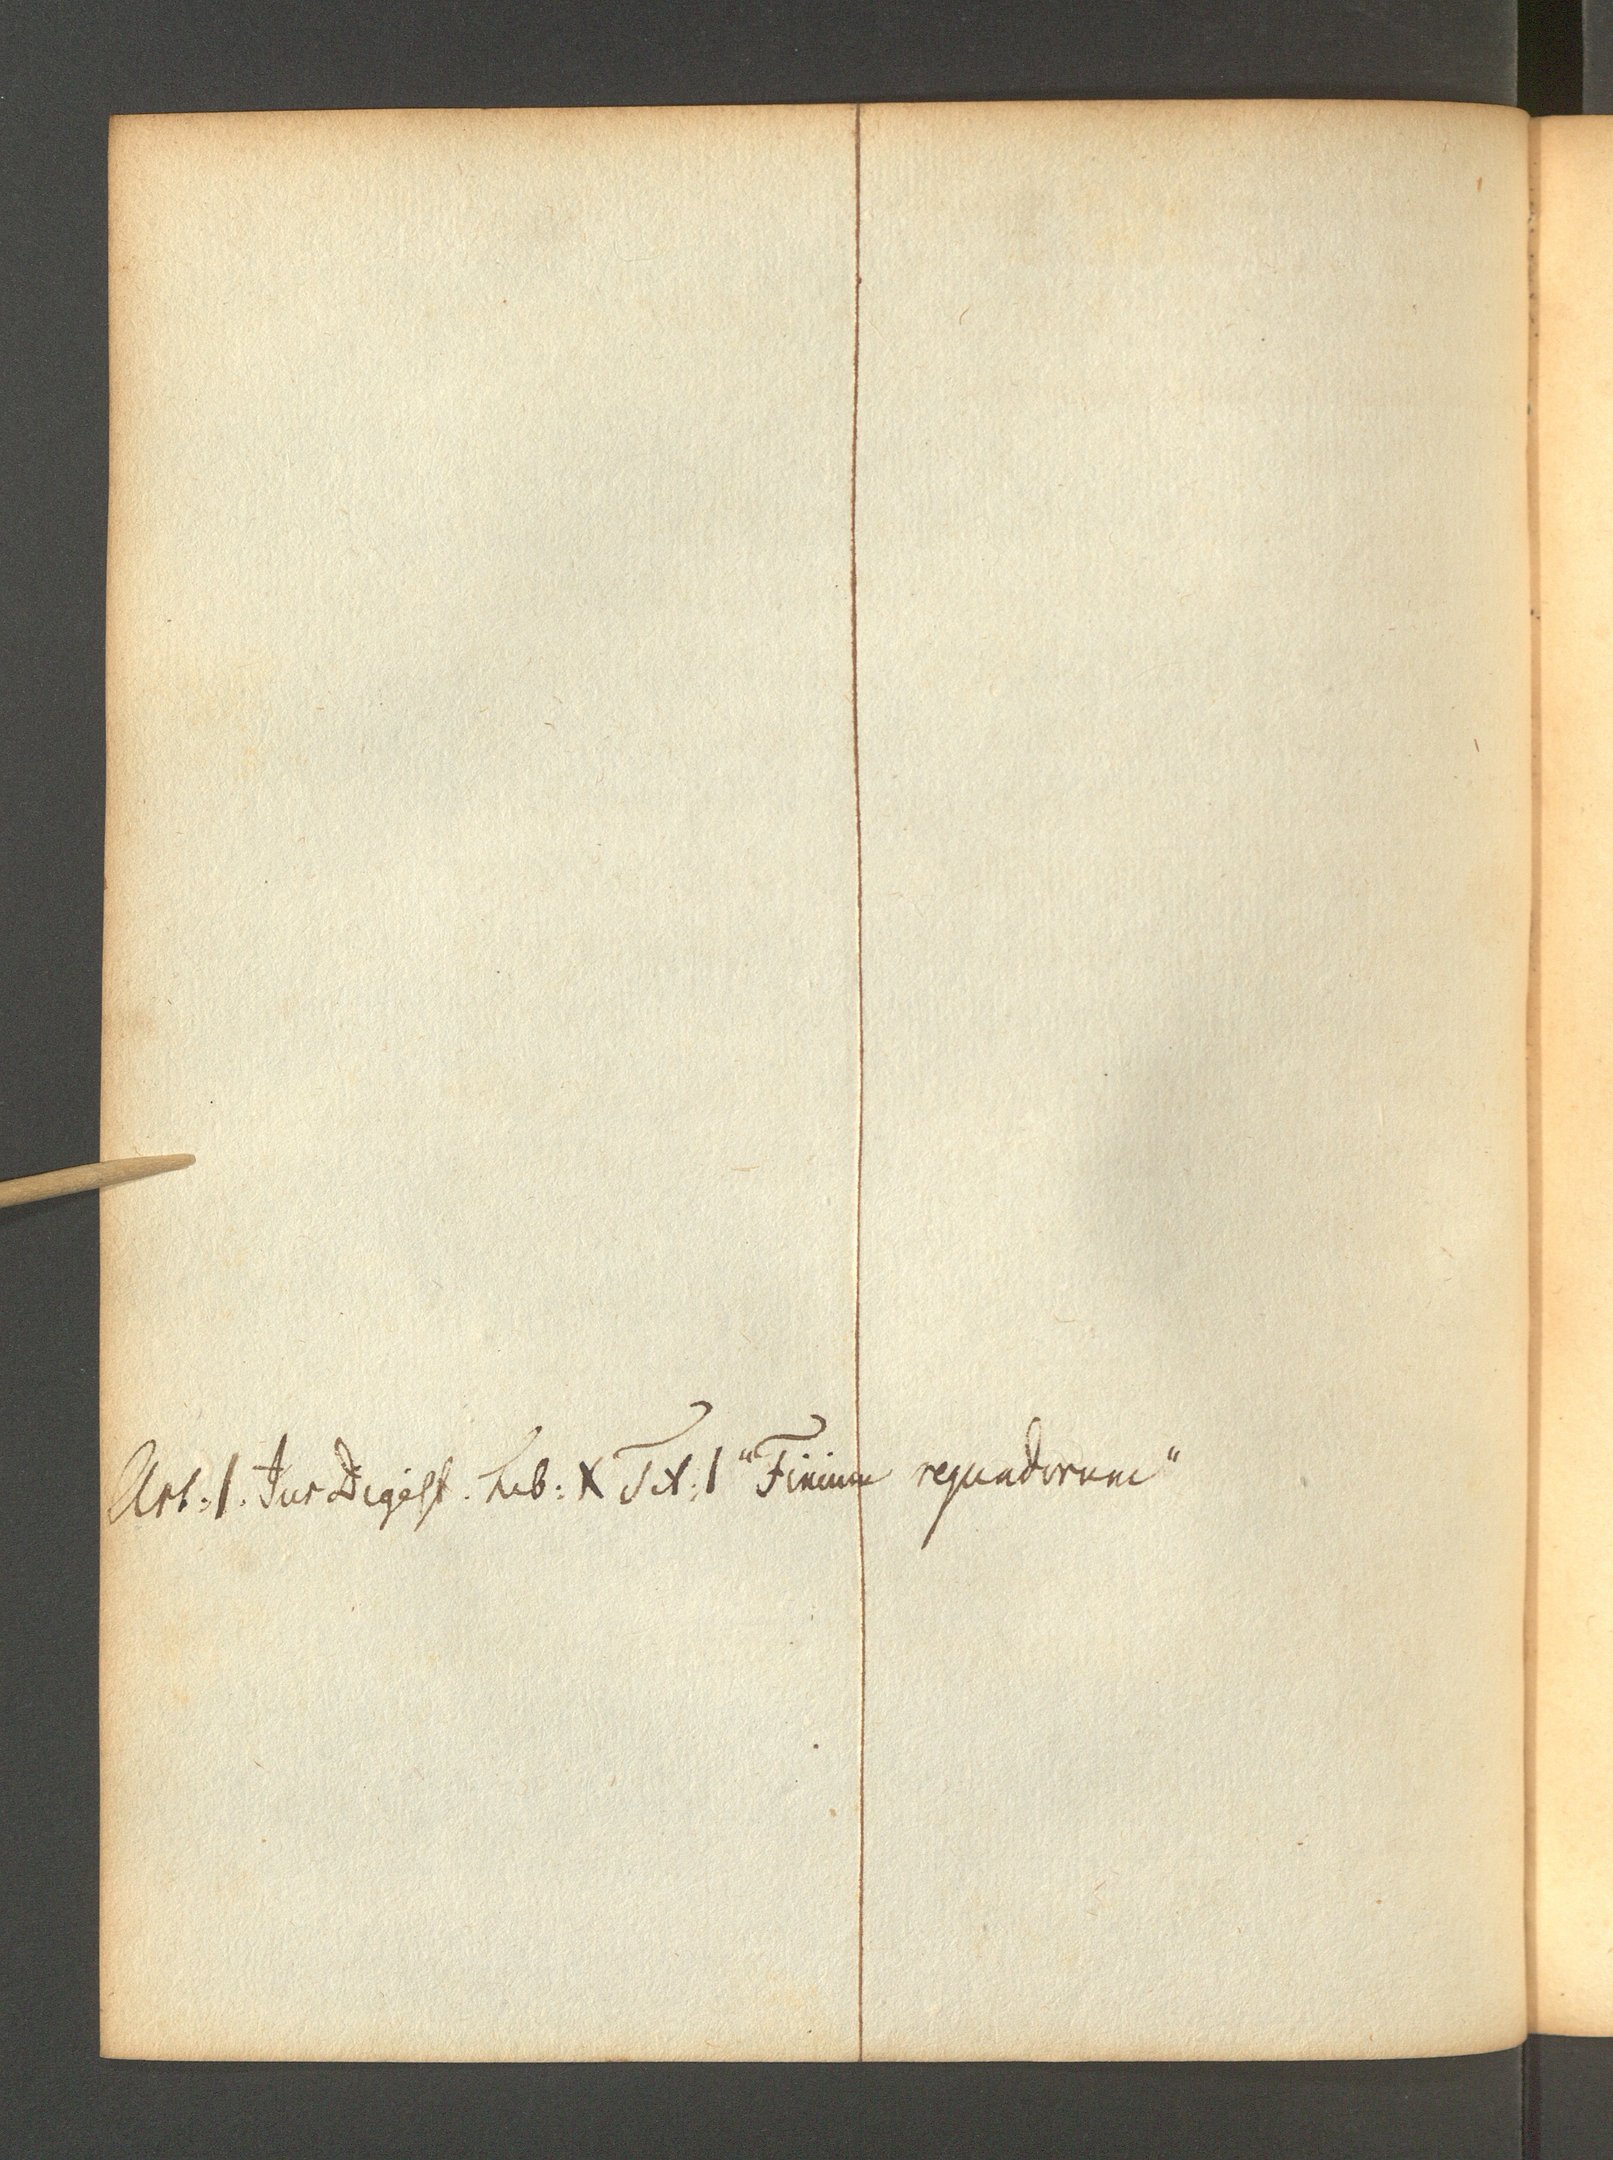 Art: 1. Jur Digest. Lib: X Tit: 1 "Finium regundorum"